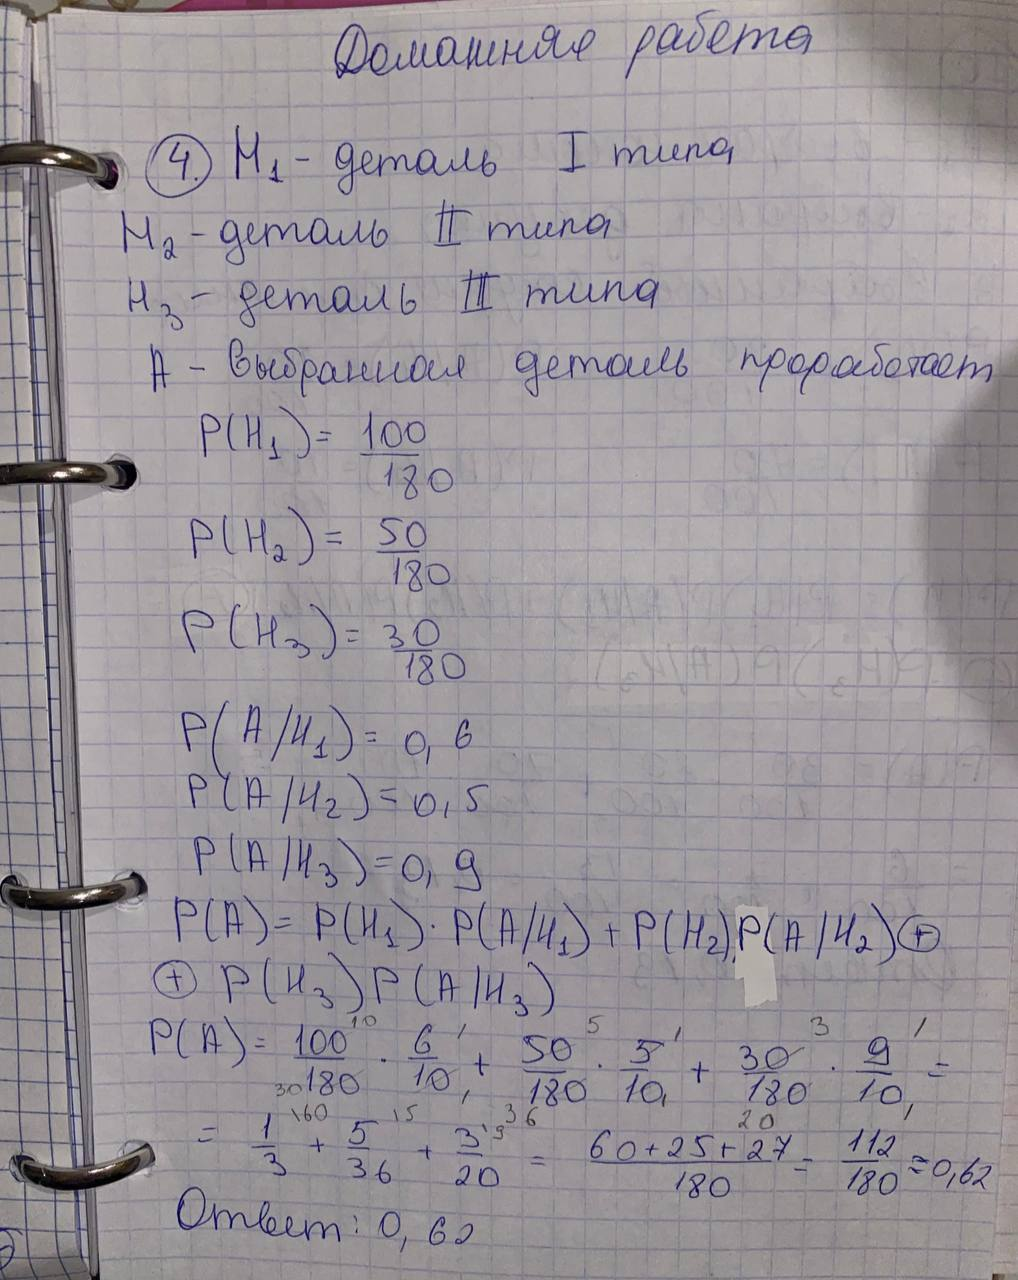 Домашняя работа
4. H₁ - деталь I типа
H₂ - деталь II типа
H₃ - деталь III типа
A - выбранная деталь проработает
P(H₁) = 100/180
P(H₂) = 50/180
P(H₃) = 30/180
P(A/H₁) = 0,6
P(A/H₂) = 0,5
P(A/H₃) = 0,9
P(A) = P(H₁)·P(A/H₁) + P(H₂)·P(A/H₂) ⊕
⊕ P(H₃)P(A/H₃)
P(A) = 100/180 · 6/10 + 50/180 · 5/10 + 30/180 · 9/10 =
= 1/3 + 5/36 + 3/20 = 60+25+27/180 = 112/180 ≈ 0,62
Ответ: 0,62